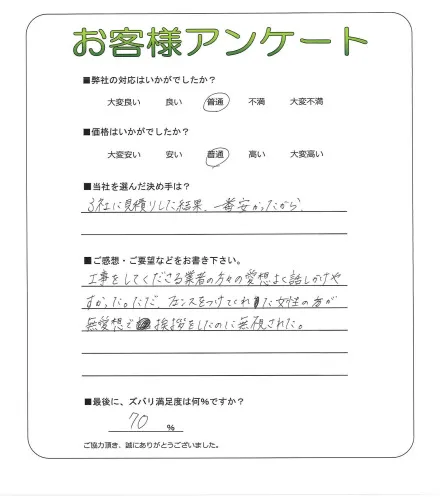 お客様アンケート
■弊社の対応はいかがでしたか？
大変良い 良い 普通 不満 大変不満
■価格はいかがでしたか？
大変安い 安い 普通 高い 大変高い
■当社を選んだ決め手は？
3社に見積りした結果、一番安かったから。
■ご感想・ご要望などをお書き下さい。
工事をしてくださる業者の方々の愛想よく話しかけや
すかった。ただ、フェンスをつけてくれた女性の方が
無愛想で 挨拶をしたのに無視された。
■最後に、ズバリ満足度は何％ですか？
70 ％
ご協力頂き、誠にありがとうございました。